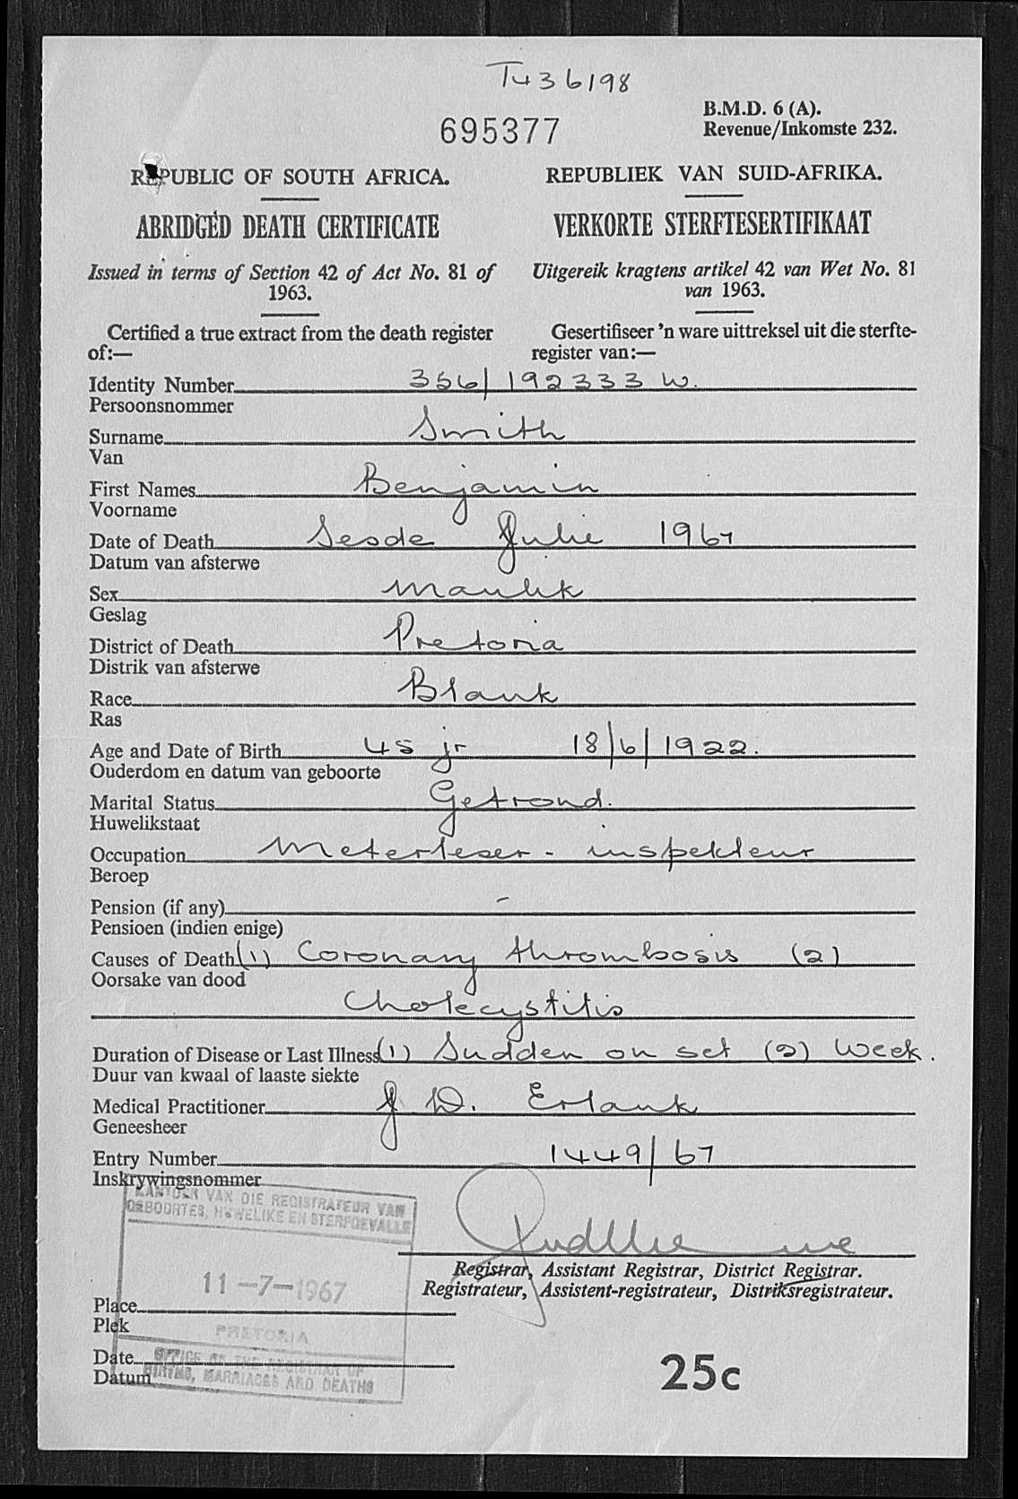 T436198
695377
B.M.D. 6 (A).
Revenue/Inkomste 232.
REPUBLIC OF SOUTH AFRICA.
ABRIDGED DEATH CERTIFICATE
Issued in terms of Section 42 of Act No. 81 of
1963.
Certified a true extract from the death register
of:—
REPUBLIEK VAN SUID-AFRIKA.
VERKORTE STERFTESERTIFIKAAT
Uitgereik kragtens artikel 42 van Wet No. 81
van 1963.
Gesertifiseer 'n ware uittreksel uit die sterfte-
register van:—
Identity Number 356/192333 W.
Persoonsnommer
Surname Smith
Van
First Names Benjamin
Voorname
Date of Death Sesde Julie 1967
Datum van afsterwe
Sex Manlik
Geslag
District of Death Pretoria
Distrik van afsterwe
Race Blank
Ras
Age and Date of Birth 45 jr 18/6/1922.
Ouderdom en datum van geboorte
Marital Status Getroud.
Huwelikstaat
Occupation Meterleser - inspekteur
Beroep
Pension (if any) -
Pensioen (indien enige)
Causes of Death (1) Coronary thrombosis (2)
Oorsake van dood
Cholecystitis
Duration of Disease or Last Illness (1) Sudden on set (2) Week.
Duur van kwaal of laaste siekte
Medical Practitioner J D. Erlank
Geneesheer
Entry Number 1449/67
Inskrywingsnommer
KANTOOR VAN DIE REGISTRATEUR VAN
GEBOORTES, HUWELIKE EN STERFGEVALLE
11-7-1967
PRETORIA
OFFICE OF THE REGISTRAR OF
BIRTHS, MARRIAGES AND DEATHS
Registrar, Assistant Registrar, District Registrar.
Registrateur, Assistent-registrateur, Distriksregistrateur.
Place
Plek
Date
Datum
25c